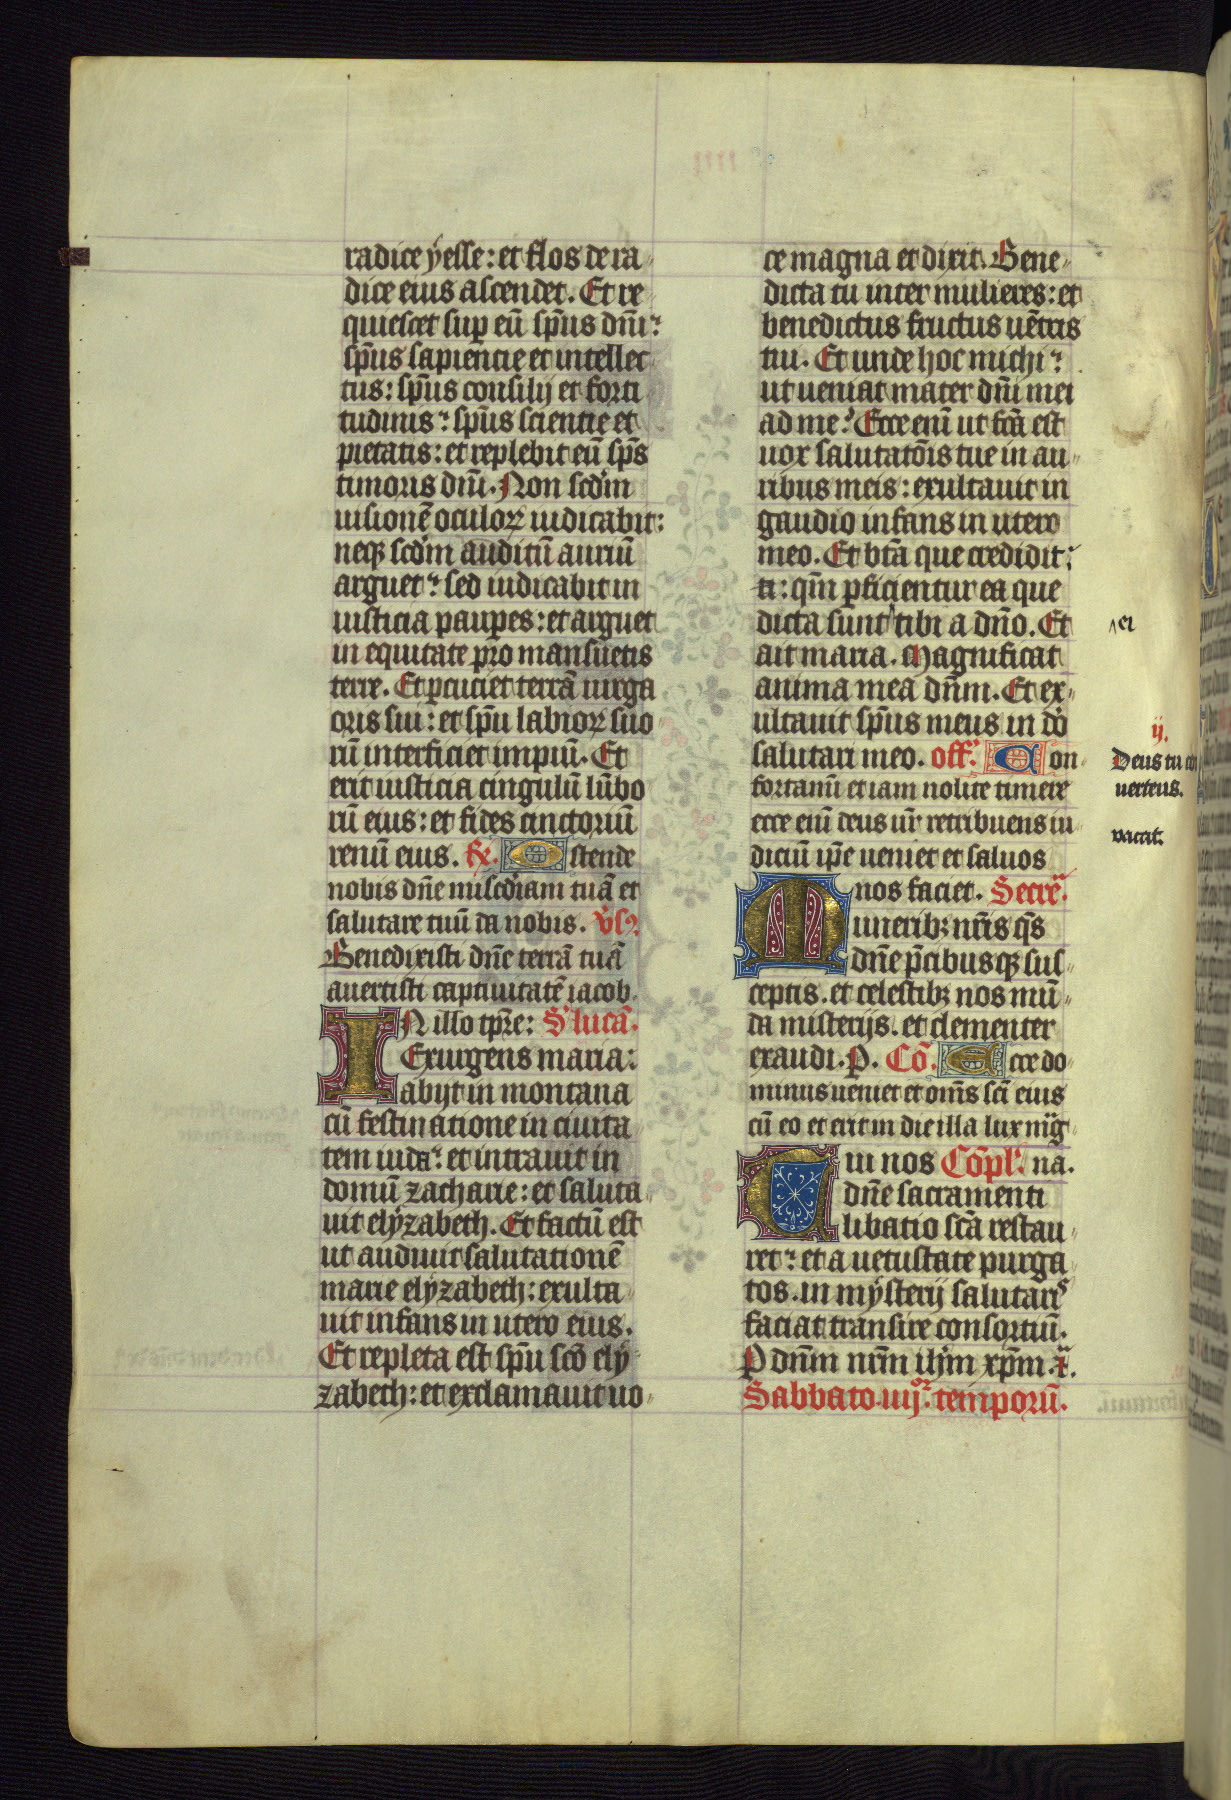 radice ÿesse: et flos de ra
dice eius ascendet. Et re
quiescet sup eū sp̄us dn̄i:
sp̄us sapientie et intellec
tus: sp̄us consilij et forti
tudinis: sp̄us scientie et
pietatis: et replebit eū sp̄s
timoris dn̄i. Non scd̄m
uisionē oculoꝝ iudicabit:
neqꝫ scd̄m auditū auriū
arguet: sed iudicabit in
iusticia paup̲es: et arguet
in equitate pro mansuetis
terre. Et ꝑcuciet terrā uirga
oris sui: et sp̄u labioꝝ suo
rū interficiet impiū. Et
erit iusticia cingulū lūbo
rū eius: et fides cinctoriū
renū eius. R̸. Ostende
nobis dn̄e misc̄diam tuā et
salutare tuū da nobis. v̄s.
Benedixisti dn̄e terrā tuā
auertisti captiuitatē iacob.
IN illo tp̄re: S. lucā.
Exurgens maria:
abijt in montana
cū festinatione in ciuita
tem iuda: et intrauit in
domū zacharie: et saluta
uit elÿzabeth. Et factū est
ut audiuit salutationē
marie elÿzabeth: exulta
uit infans in utero eius.
Et repleta est sp̄u scō elÿ
zabeth: et exclamauit uo
ce magna et dixit. Bene
dicta tu inter mulieres: et
benedictus fructus uētris
tui. Et unde hoc michi:
ut ueniat mater dn̄i mei
ad me? Ecce eni̅ ut fc̄a est
uox salutatōis tue in au
ribus meis: exultauit in
gaudio infans in utero
meo. Et bt̄a que credidit:
ti: qm̄ ꝑficientur ea que
dicta sunt tibi a dn̄o. Et
^ ei
ait maria. Magnificat
anima mea dn̄m. Et ex
ultauit sp̄us meus in dō
salutari meo. off. Con
fortamī et iam nolite timere
ecce eni̅ deus ur̄ retribuens iu
diciū ip̄e ueniet et saluos
nos faciet. Secrē.
Muneribꝫ nr̄is qs̄
dn̄e p̄cibusqꝫ sus
ceptis. et celestibꝫ nos mū
da misterijs. et clementer
exaudi. P. Cō. Ecce do
minus ueniet et om̄s sc̄i eius
cū eo et erit in die illa lux mͣg
Tui nos Cōpl. na.
dn̄e sacramenti
libatio sc̄a restau
ret: et a uetustate purga
tos. in mÿsterij salutaris
faciat transire consortiū.
P dn̄m nr̄m ih̄m xp̄m.
Sabbato. iiijor. temporū.
ij.
Deus tu con
uertens.
vacat.